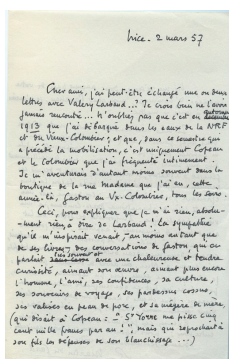 Nice - 2 mars 57
Cher ami, j'ai peut-être échangé une ou deux
lettres avec Valery Larbaud...? Je crois bien ne l'avoir
jamais rencontré... N'oubliez pas que c'est en automne
1913 que j'ai débarqué dans les eaux de la NRF
et du Vieux-Colombier, et que, dans ce semestre qui
a précédé la mobilisation, c'est uniquement Copeau
et le Colombier que j'ai fréquenté intimement.
Je m'aventurais d'autant moins souvent dans la
boutique de la rue Madame que j'ai eu, cette
année-là, Gaston au Vx-Colombier, tous les soirs.
Ceci, pour expliquer que je n'ai rien, absolu-
-ment rien, à dire de Larbaud! La sympathie
qu'il m'inspirait venait au moins autant que
de ses livres, des conversations de Gaston qui en
parlait très souvent et avec une chaleureuse et tendre
curiosité, aimant son œuvre, aimant plus encore
l'homme, l'ami, ses confidences, sa culture,
ses souvenirs de voyages, ses pardessus cossus,
ses valises en peau de porc, et sa mégère de mère
(qui disait à Copeau: "St Yorre me pisse cinq
cent mille francs par an!", mais qui reprochait à
son fils les dépenses de son blanchissage...)